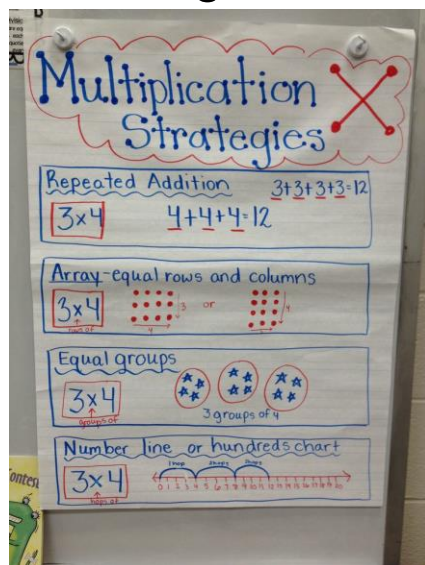 Multiplication
Strategies
Repeated Addition 3+3+3+3=12
3×4 4+4+4=12
Array-equal rows and columns
3×4 3 or 4
rows of 4
Equal groups
3×4
groups of 3 groups of 4
Number line or hundreds chart
1 hop 2 hops 3 hops
3×4 0 1 2 3 4 5 6 7 8 9 10 11 12 13 14 15 16 17 18 19 20
hops of